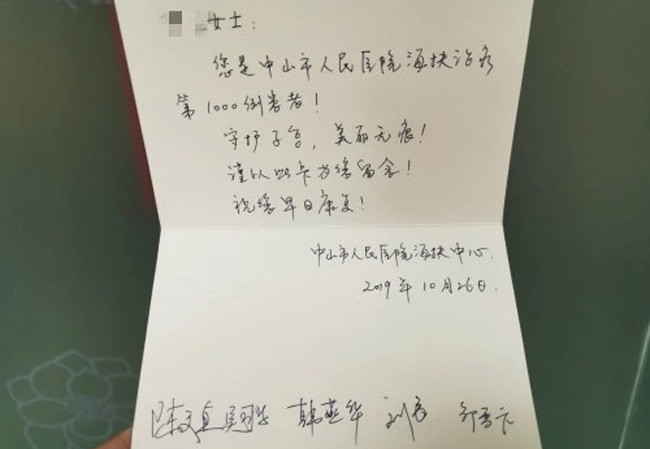 女士：
您是中山市人民医院海扶治疗
第1000例患者！
守护子宫，美丽无痕！
谨以此卡为您留念！
祝您早日康复！
中山市人民医院海扶中心.
2019年10月26日.
韩燕华